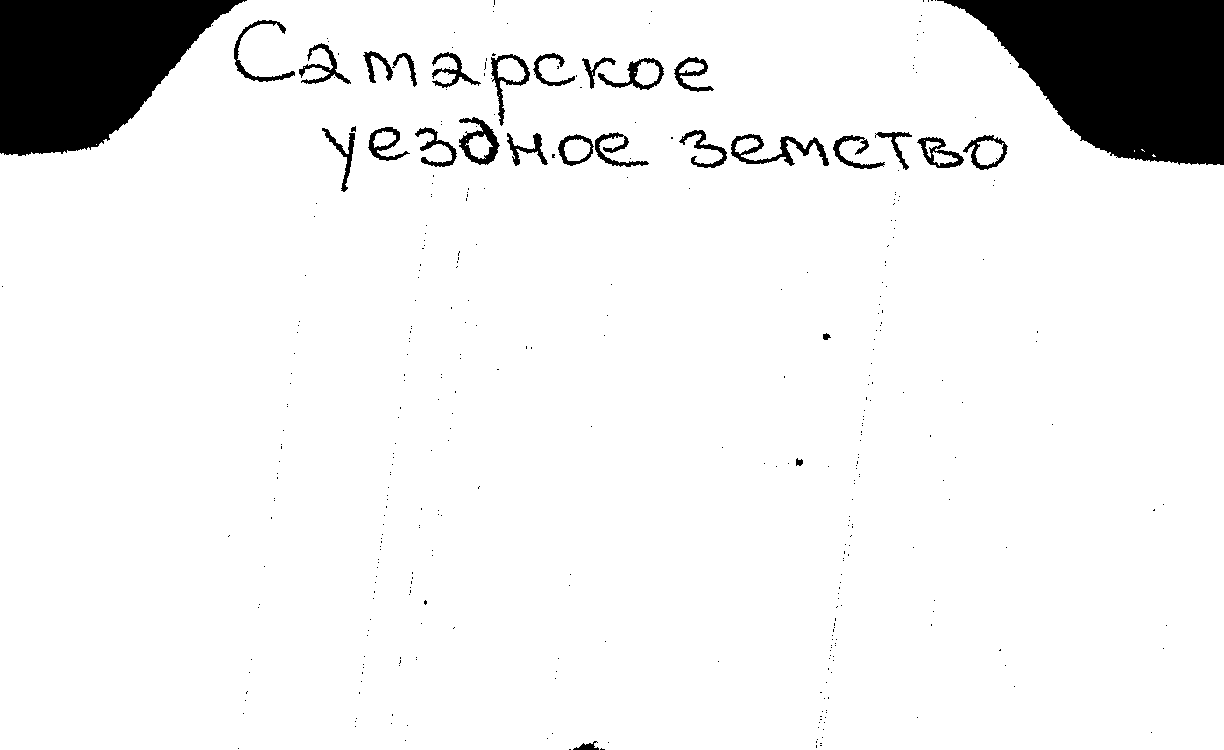 Самарское
уездное земство